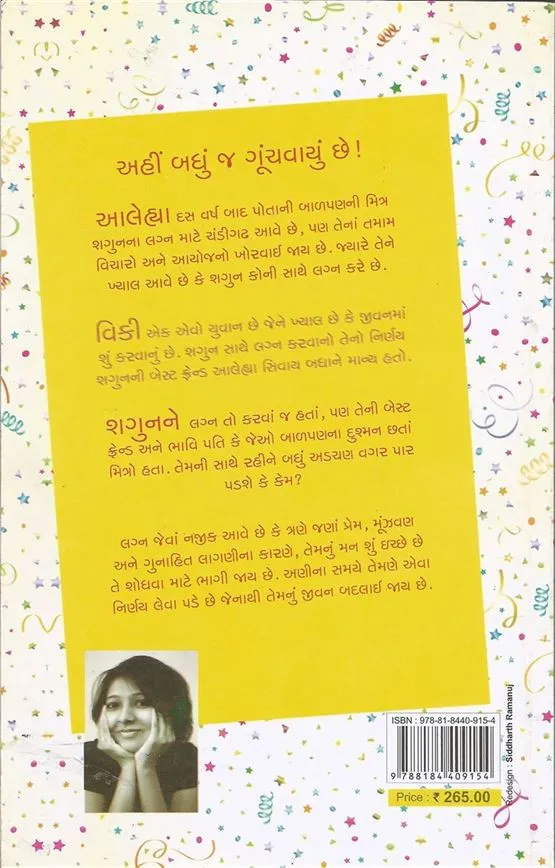 અહીં બધું જ ગૂંચવાયું છે!
આલેહ્યા દસ વર્ષ બાદ પોતાની બાળપણની મિત્ર
શગુનના લગ્ન માટે ચંડીગઢ આવે છે, પણ તેનાં તમામ
વિચારો અને આયોજનો ખોરવાઈ જાય છે. જ્યારે તેને
ખ્યાલ આવે છે કે શગુન કોની સાથે લગ્ન કરે છે.
વિકી એક એવો યુવાન છે જેને ખ્યાલ છે કે જીવનમાં
શું કરવાનું છે. શગુન સાથે લગ્ન કરવાનો તેનો નિર્ણય
શગુનની બેસ્ટ ફ્રેન્ડ આલેહ્યા સિવાય બધાને માન્ય હતો.
શગુનને લગ્ન તો કરવાં જ હતાં, પણ તેની બેસ્ટ
ફ્રેન્ડ અને ભાવિ પતિ કે જેઓ બાળપણના દુશ્મન છતાં
મિત્રો હતા. તેમની સાથે રહીને બધું અડચણ વગર પાર
પડશે કે કેમ?
લગ્ન જેવાં નજીક આવે છે કે ત્રણે જણાં પ્રેમ, મૂંઝવણ
અને ગુનાહિત લાગણીના કારણે, તેમનું મન શું ઇચ્છે છે
તે શોધવા માટે ભાગી જાય છે. અણીના સમયે તેમણે એવા
નિર્ણય લેવા પડે છે જેનાથી તેમનું જીવન બદલાઈ જાય છે.
ISBN : 978-81-8440-915-4
9 788184 409154
Price : ₹ 265.00
Redesign : Siddharth Ramanuj